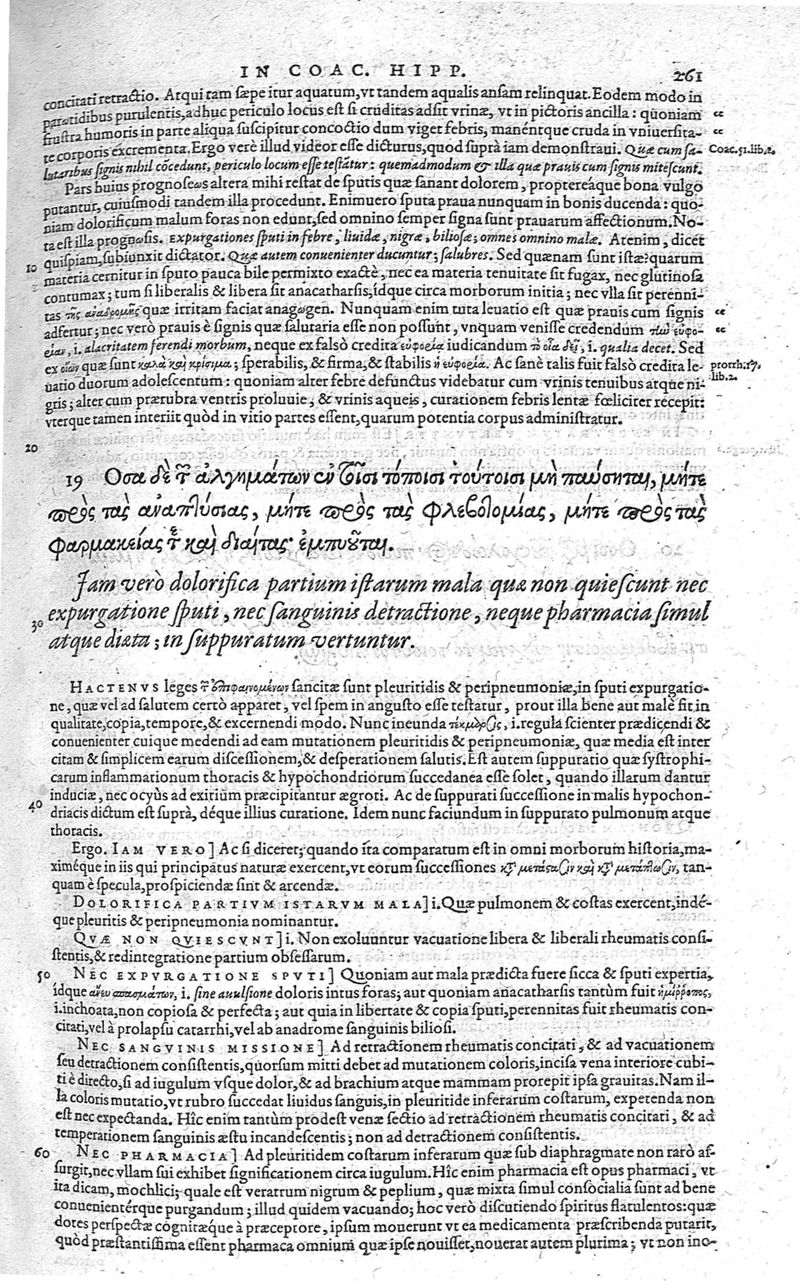 IN COAC. HIPP. 261
concitati retractio. Atqui tam sæpe itur aquatum, vt tandem aqualis ansam relinquat. Eodem modo in
parotidibus purulentis, adhuc periculo locus est si cruditas adsit vrinæ, vt in pictoris ancilla: quoniam “
frustra humoris in parte aliqua suscipitur concoctio dum viget febris, manéntque cruda in vniuersita- “
te corporis excrementa. Ergo verè illud videor esse dicturus, quod suprà iam demonstraui. Quæ cum sa- Coac. 51. lib. 2.
lutaribus signis nihil cõcedunt, periculo locum esse testãtur: quemadmodum & illa quæ prauis cum signis mitescunt.
Pars huius prognoseωs altera mihi restat de sputis quæ sanant dolorem, proptereaque bona vulgo
putantur, cuiusmodi tandem illa procedunt. Enimuero sputa praua nunquam in bonis ducenda: quo-
niam dolorificum malum foras non edunt, sed omnino semper signa sunt prauarum affectionum. No-
ta est illa prognosis. Expurgationes sputi in febre, liuidæ, nigræ, biliosæ; omnes omnino malæ. Atenim, dicet
10 quispiam, subiunxit dictator. Quæ autem conuenienter ducuntur; salubres. Sed quænam sunt istæ? quarum
materia cernitur in sputo pauca bile permixto exactè, nec ea materia tenuitate sit fugax, nec glutinosa
contumax; tum si liberalis & libera sit anacatharsis, idque circa morborum initia; nec vlla sit perenni-
tas τῆς ἀναδρομῆς quæ irritam faciat anagωgen. Nunquam enim tuta leuatio est quæ prauis cum signis “
adfertur; nec verò prauis è signis quæ salutaria esse non possunt, vnquam venisse credendum τὼ εὐφο- “
είαν, i. alacritatem ferendi morbum, neque ex falsò credita εὐφορία iudicandum τὸ οἷα δεῖ, i. qualia decet. Sed
ex οἵων quæ sunt καλὰ καὶ κρίσιμα; sperabilis, & firma, & stabilis ἡ εὐφορία. Ac sanè talis fuit falsò credita le- prorrh. 17.
uatio duorum adolescentum: quoniam alter febre defunctus videbatur cum vrinis tenuibus atque ni- lib. 2.
gris; alter cum prærubra ventris proluuie, & vrinis aqueis, curationem febris lentæ fœliciter recepit:
vterque tamen interiit quòd in vitio partes essent, quarum potentia corpus administratur.
20
19 Οσα δὲ τ῀ ἀλγημάτων ἐν τοῖσι τόποισι τούτοισι μὴ παύσηται, μήτε
πρὸς τὰς ἀναπτύσιας, μήτε πρὸς τὰς φλεβοτομίας, μήτε πρὸς τὰς
φαρμακείας τε καὶ διαίτας· ἐμπυοῦται.
Jam verò dolorifica partium istarum mala quæ non quiescunt nec
30 expurgatione sputi, nec sanguinis detractione, neque pharmacia simul
atque diæta; in suppuratum vertuntur.
HACTENVS leges τ῀ ἐπιφαινομένων sancitæ sunt pleuritidis & peripneumoniæ, in sputi expurgatio-
ne, quæ vel ad salutem certò apparet, vel spem in angusto esse testatur, prout illa bene aut malè fit in
qualitate, copia, tempore, & excernendi modo. Nunc ineunda τέκμαρσις, i. regula scienter prædicendi &
conuenienter cuique medendi ad eam mutationem pleuritidis & peripneumoniæ, quæ media est inter
citam & simplicem earum discessionem, & desperationem salutis. Est autem suppuratio quæ systrophi-
carum inflammationum thoracis & hypochondriorum succedanea esse solet, quando illarum dantur
40 induciæ, nec ocyùs ad exitium præcipitantur ægroti. Ac de suppurati successione in malis hypochon-
driacis dictum est suprà, déque illius curatione. Idem nunc faciundum in suppurato pulmonum atque
thoracis.
Ergo. IAM VERO] Ac si diceret; quando ita comparatum est in omni morborum historia, ma-
ximéque in iis qui principatus naturæ exercent, vt eorum successiones κατ᾽ μετάστασιν καὶ κατ᾽ μετάπτωσιν, tan-
quam è specula, prospiciendæ sint & arcendæ.
DOLORIFICA PARTIVM ISTARVM MALA] i. Quæ pulmonem & costas exercent, indé-
que pleuritis & peripneumonia nominantur.
QVÆ NON QVIESCVNT] i. Non exoluuntur vacuatione libera & liberali rheumatis consi-
stentis, & redintegratione partium obsessarum.
50 NEC EXPVRGATIONE SPVTI] Quoniam aut mala prædicta fuere sicca & sputi expertia,
idque ἄνευ ἀποσπασμάτων, i. sine auulsione doloris intus foras; aut quoniam anacatharsis tantùm fuit ἡμίῤῥοπος,
i. inchoata, non copiosa & perfecta; aut quia in libertate & copia sputi, perennitas fuit rheumatis con-
citati, vel à prolapsu catarrhi, vel ab anadrome sanguinis biliosi.
NEC SANGVINIS MISSIONE] Ad retractionem rheumatis concitati, & ad vacuationem
seu detractionem consistentis, quorsum mitti debet ad mutationem coloris, incisa vena interiore cubi-
ti è directo, si ad iugulum vsque dolor, & ad brachium atque mammam prorepit ipsa grauitas. Nam il-
la coloris mutatio, vt rubro succedat liuidus sanguis, in pleuritide inferarum costarum, expetenda non
est nec expectanda. Hîc enim tantùm prodest venæ sectio ad retractionem rheumatis concitati, & ad
temperationem sanguinis æstu incandescentis; non ad detractionem consistentis.
60 NEC PHARMACIA] Ad pleuritidem costarum inferarum quæ sub diaphragmate non rarò as-
surgit, nec vllam sui exhibet significationem circa iugulum. Hîc enim pharmacia est opus pharmaci, vt
ita dicam, mochlici; quale est veratrum nigrum & peplium, quæ mixta simul consocialia sunt ad bene
conuenientérque purgandum; illud quidem vacuando; hoc verò discutiendo spiritus flatulentos: quæ
dotes perspectæ cognitæque à præceptore, ipsum mouerunt vt ea medicamenta præscribenda putarit,
quòd præstantissima essent pharmaca omnium quæ ipse nouisset, nouerat autem plurima; vt non ino-